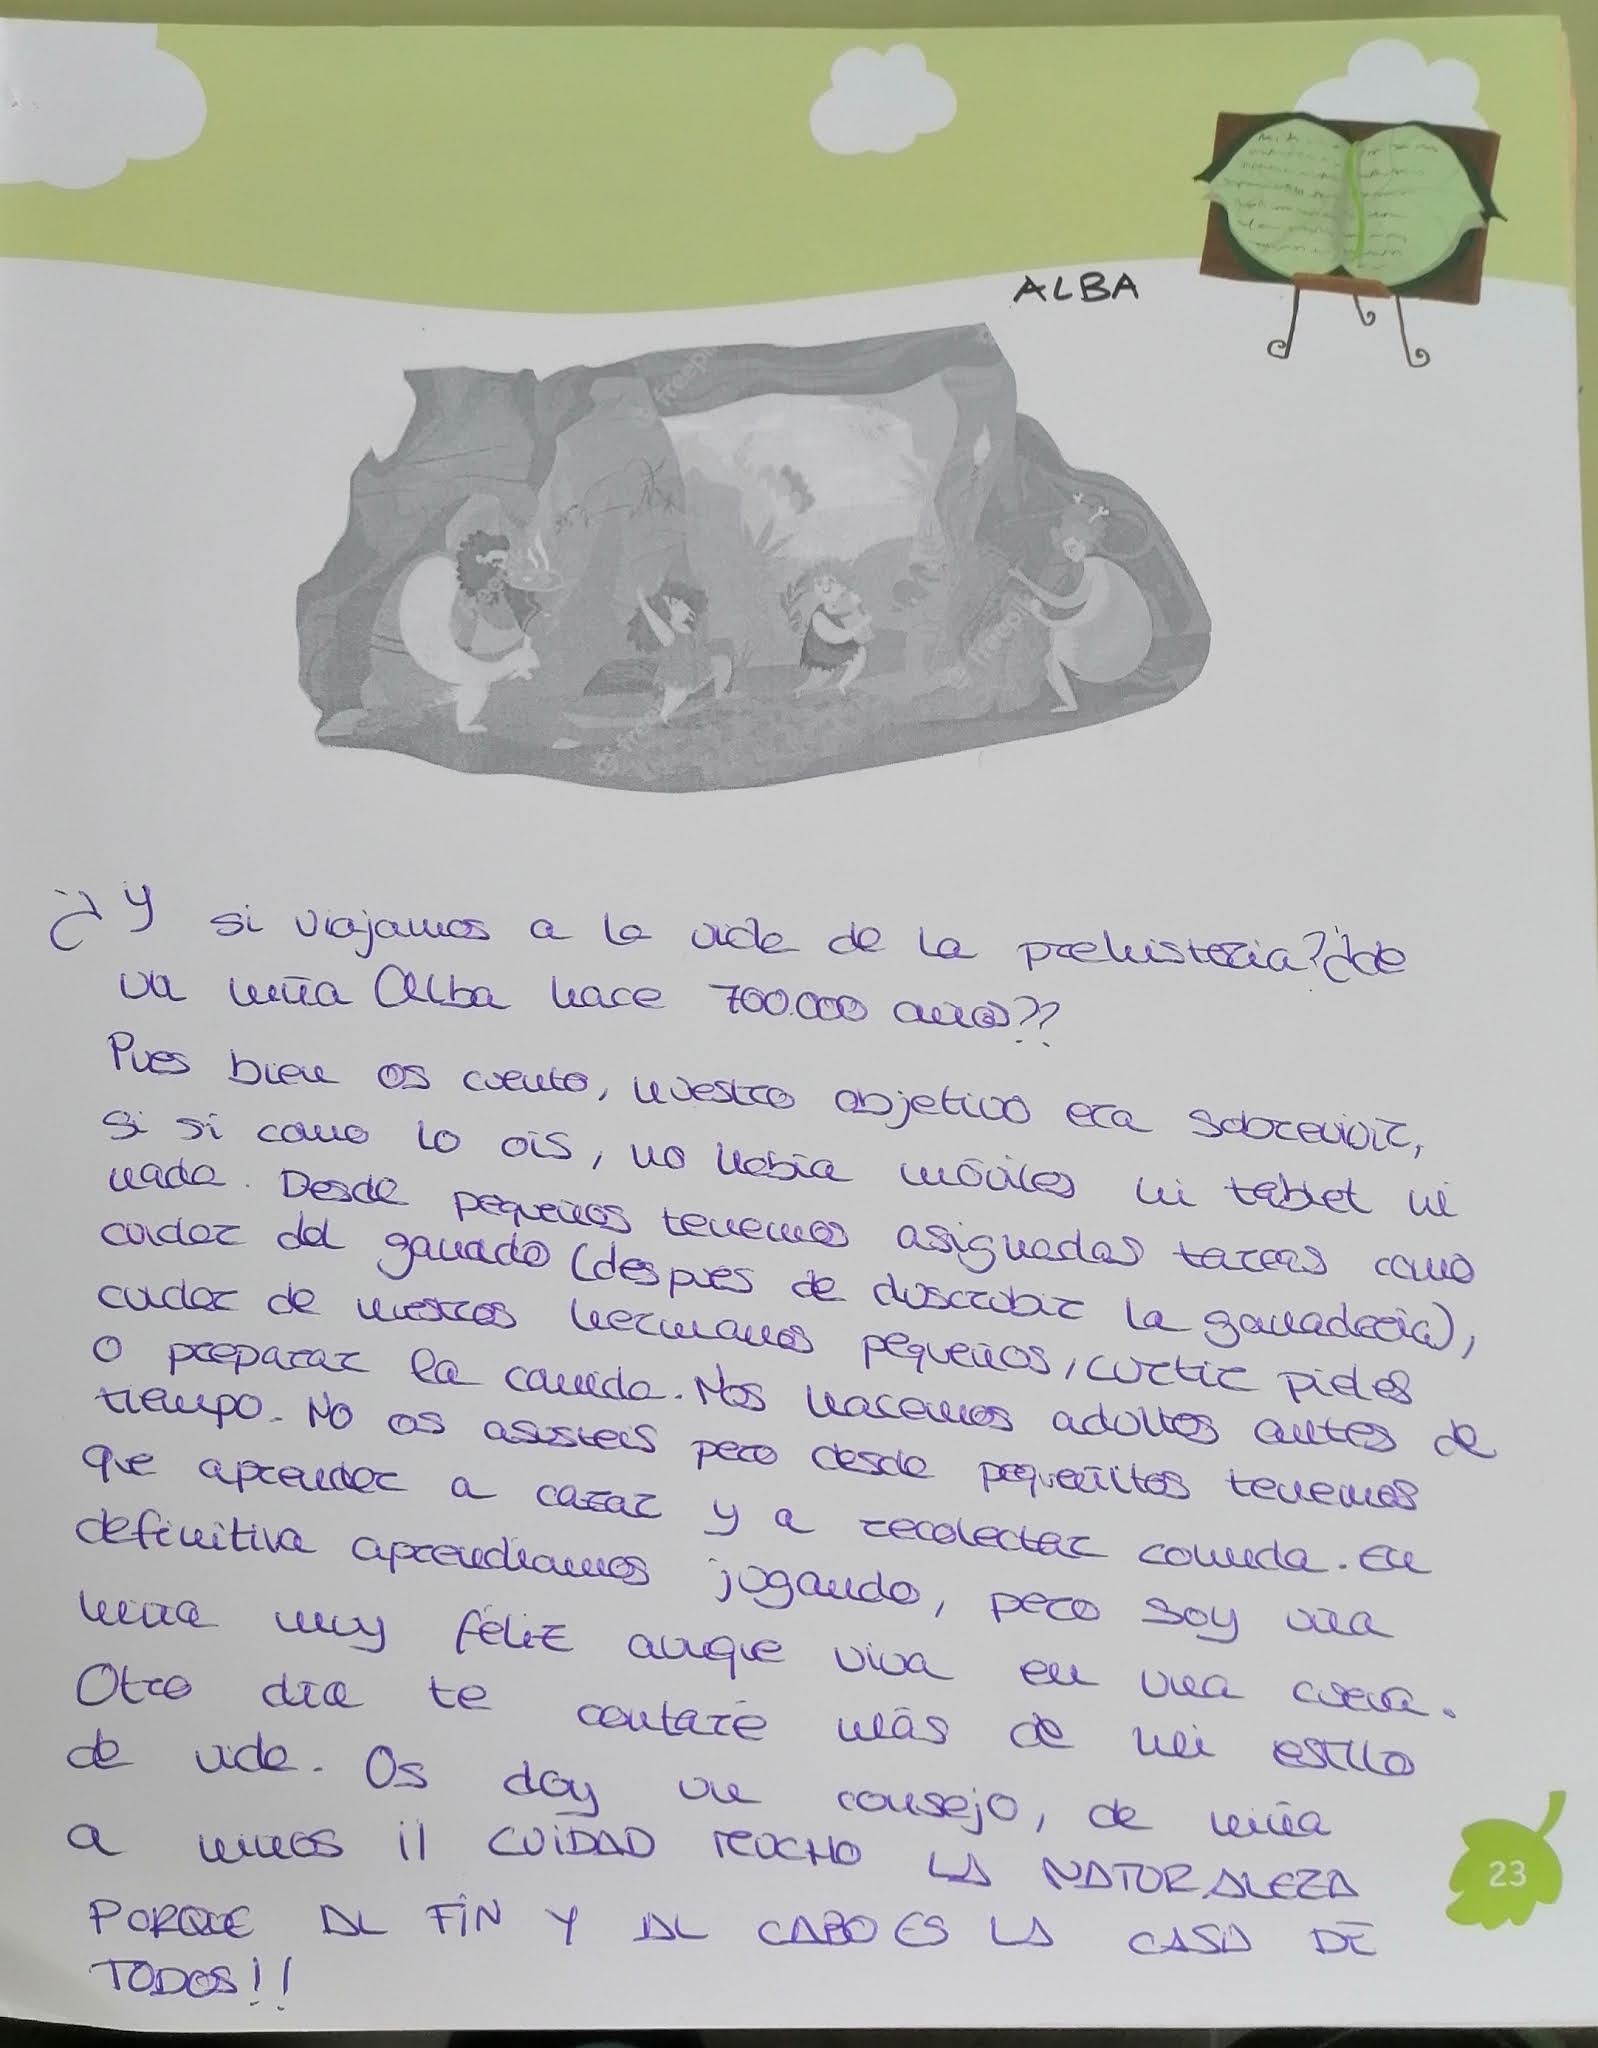 ALBA
¿Y si viajamos a la vida de la prehistoria? ¿de
una niña Alba hace 700.000 años??
Pues bien os cuento, nuestro objetivo era sobrevivir,
si si como lo ois, no había móviles ni tablet ni
nada. Desde pequeños tenemos asignadas tareas como
cuidar del ganado (despues de descubrir la ganaderia),
cuidar de nuestros hermanos pequeños, curtir pieles
o preparar la comida. Nos hacemos adultos antes de
tiempo. No os asusteis pero desde pequeñitos tenemos
que aprender a cazar y a recolectar comida. En
definitiva aprendiamos jugando, pero soy una
niña muy feliz aunque viva en una cueva.
Otro día te contaré más de mi estilo
de vida. Os doy un consejo, de niña
a niños ¡¡ CUIDAD MUCHO LA NATURALEZA
PORQUE AL FIN Y AL CABO ES LA CASA DE
TODOS!!
23